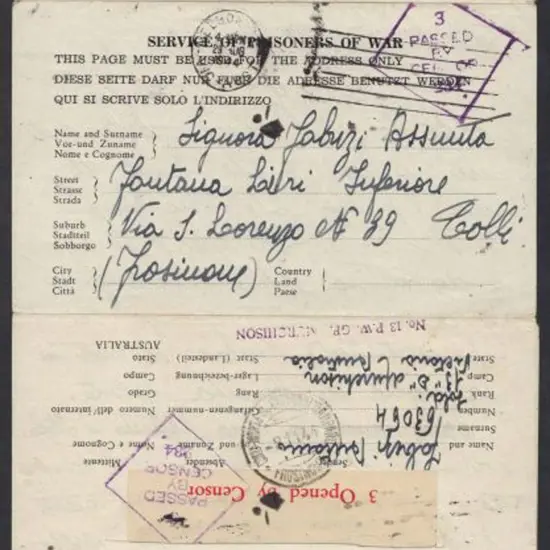 SERVICE OF PRISONERS OF WAR
THIS PAGE MUST BE USED FOR THE ADDRESS ONLY
DIESE SEITE DARF NUR FUER DIE ADRESSE BENUTZT WERDEN
QUI SI SCRIVE SOLO L'INDIRIZZO
3
PASSED
BY
Name and Surname
Vor-und Zuname
Nome e Cognome
Signora Jabuzi Assunta
Street
Strasse
Strada
Fontana Liri Inferiore
Suburb
Stadtteil
Sobborgo
Via S. Lorenzo N 39 Colli
City
Stadt
Città
(Frosinone)
Country
Land
Paese
3 Opened by Censor
PASSED
BY
CENSOR
Mittente
Absender
Nome e Cognome
Vor und Zuname
Name and
Jabuzi
Numero dell' internato
Gefangenen-nummer
Number
Grado
Rang
Rank
Sold.
Campo
Lager-bezeichnung
Camp
13 "D" Murchison
Stato
Staat (Landesteil)
State
Victoria Australia
AUSTRALIA
No. 13 P.W. GP. MURCHISON